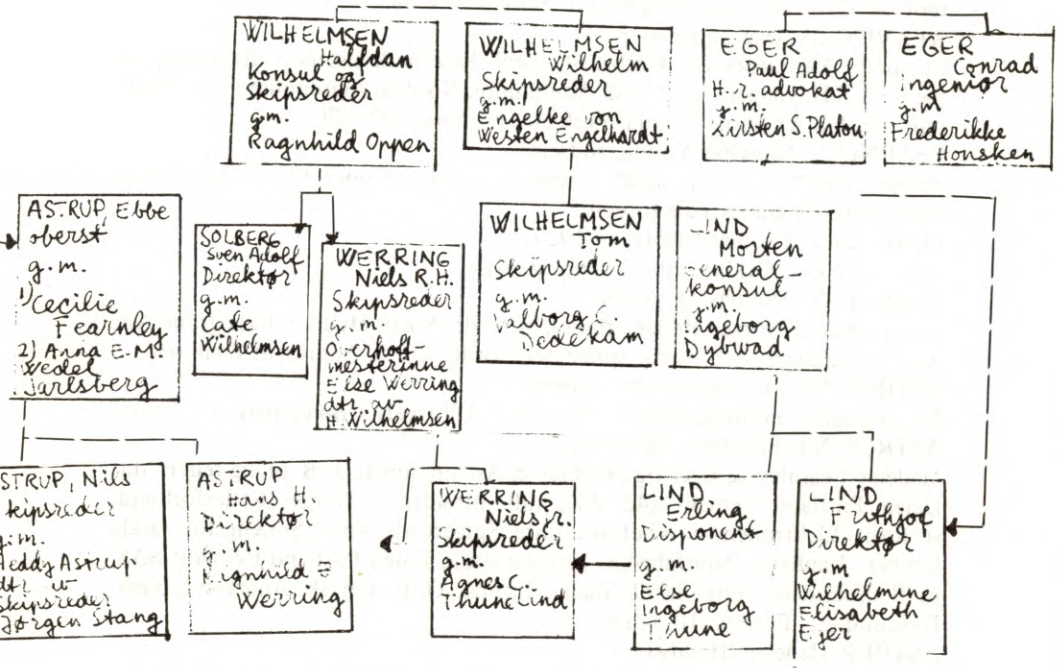 WILHELMSEN
Halfdan
Konsul og
Skipsreder
g.m.
Ragnhild Oppen
WILHELMSEN
Wilhelm
Skipsreder
g.m.
Engelke von
Westen Engelhardt
EGER
Paul Adolf
H.r. advokat
g.m.
Kirsten S. Platou
EGER
Conrad
ingeniør
g.m
Frederikke
Housken
ASTRUP, Ebbe
oberst
g.m.
1) Cecilie
Fearnley
2) Anna E.M.
Wedel
Jarlsberg
SOLBERG
Sven Adolf
Direktør
g.m.
Cate
Wilhelmsen
WERRING
Niels R.H.
Skipsreder
g.m.
Overhoff-
mesterinne
Else Werring
dtr av
H. Wilhelmsen
WILHELMSEN
Tom
Skipsreder
g.m.
Valborg C.
Dedekam
LIND
Morten
General-
konsul
g.m.
Ingeborg
Dybwad
ASTRUP, Nils
Skipsreder
g.m.
Heddy Astrup
dtr av
Skipsreder
Jørgen Stang
ASTRUP
Hans H.
Direktør
g.m.
Ragnhild
Werring
WERRING
Niels jr.
Skipsreder
g.m.
Agnes C.
Thune Lind
LIND
Erling
Disponent
g.m.
Else
Ingeborg
Thune
LIND
Frithjof
Direktør
g.m
Wilhelmine
Elisabeth
Eger